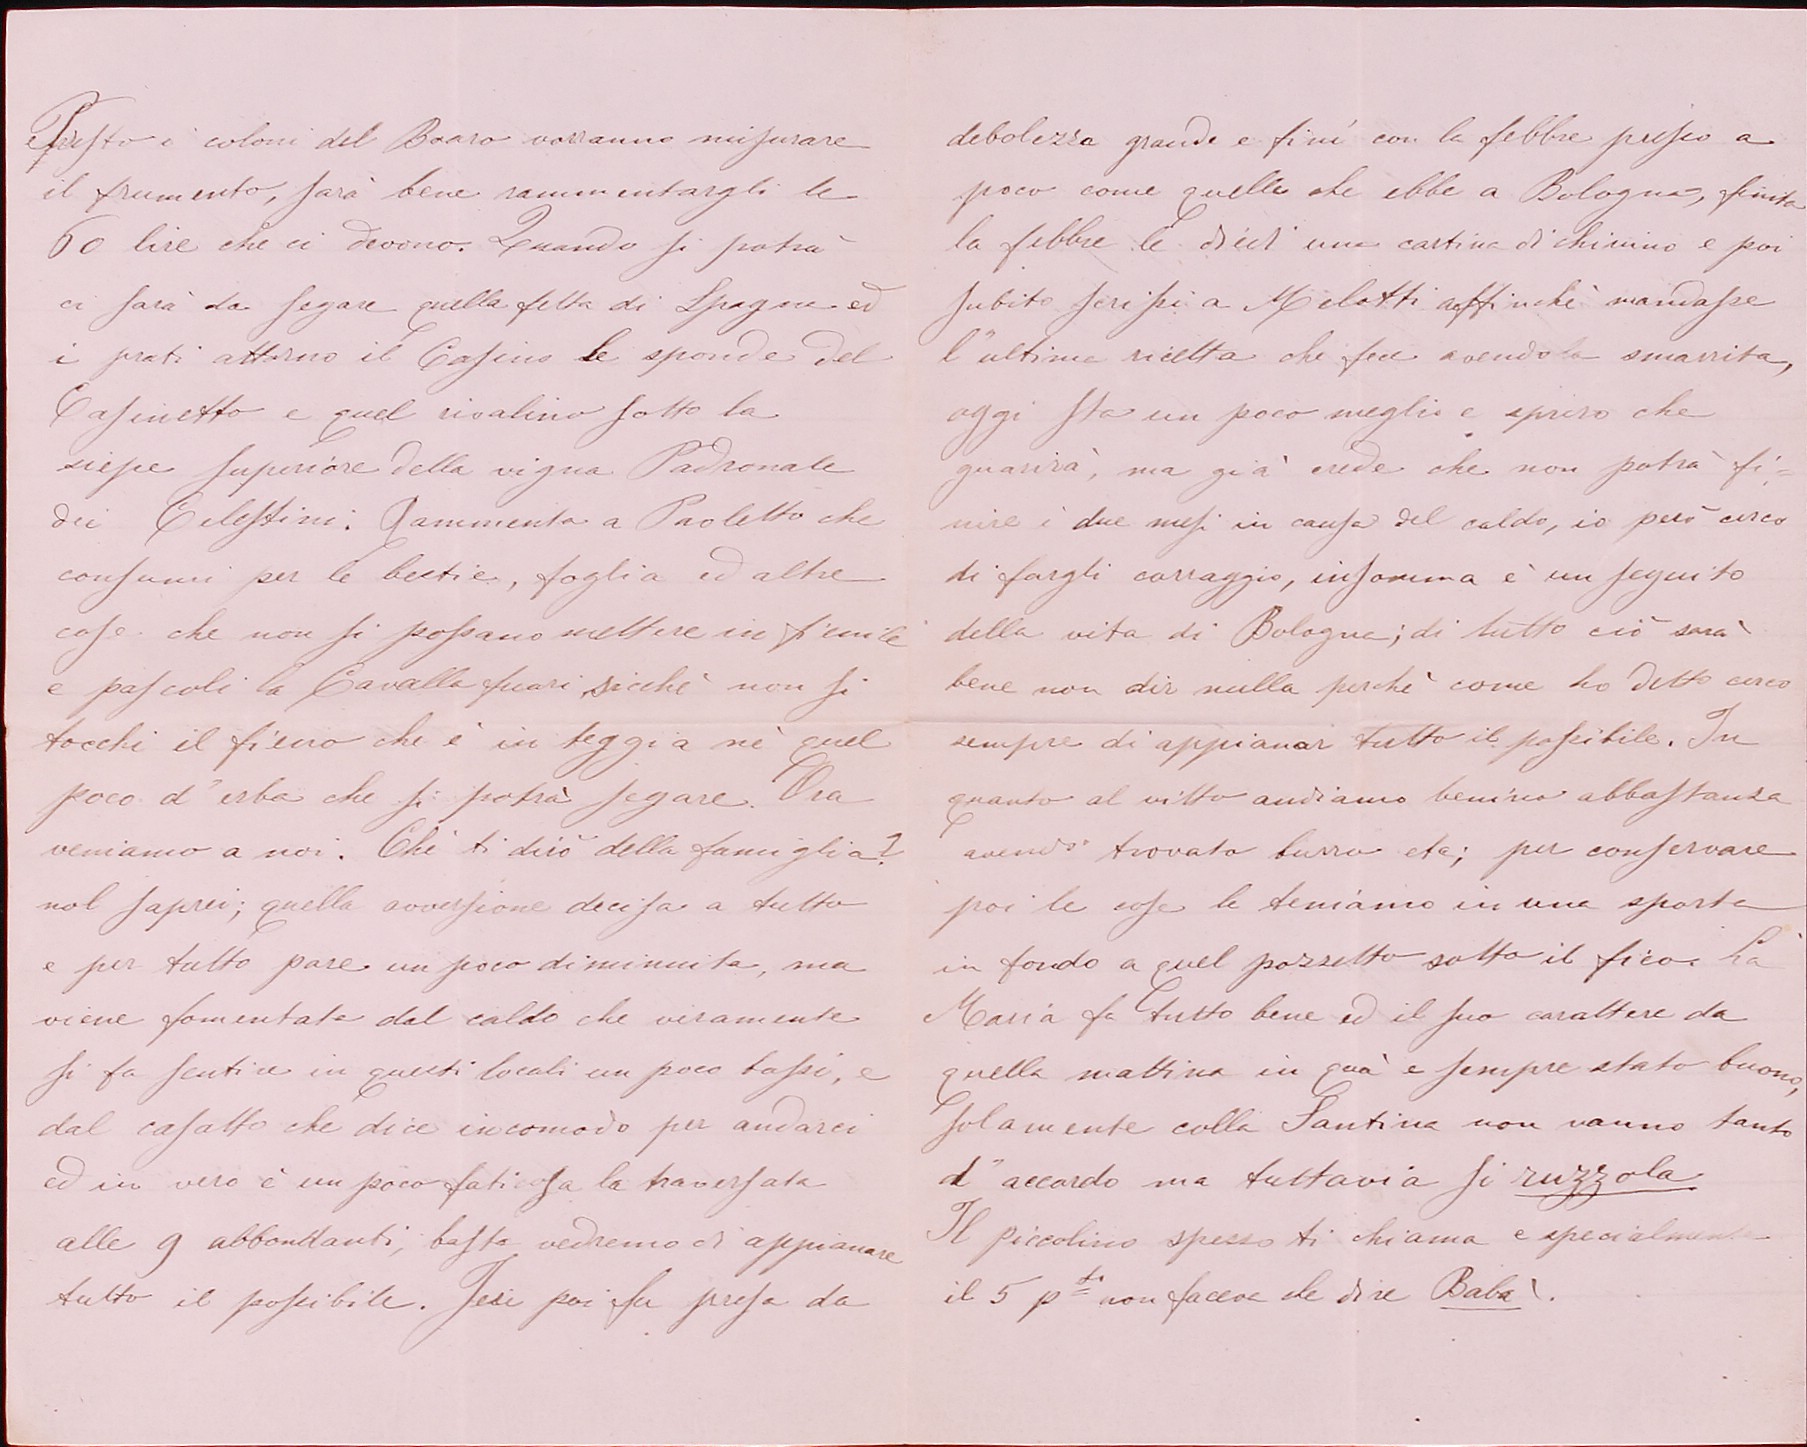 Presto i coloni del Boaro vorranno misurare
il frumento, sarà bene rammentargli le
60 lire che ci devono. Quando si potrà
ci sarà da segare quella fetta di Spagna ed
i prati attorno il Casino le sponde del
Casinetto e quel rivalino sotto la
siepe superiore della vigna Padronale
dei Celestini. Rammenta a Paoletto che
consumi per le bestie, foglia ed altre
cose che non si possano mettere in fienile
e pascoli la Cavalla fuori, sicchè non si
tocchi il fieno che è in teggia nè quel
poco d'erba che si potrà segare. Ora
veniamo a noi. Che ti dirò della famiglia?
nol saprei; quella avversione decisa a tutto
e per tutto pare un poco diminuita, ma
viene fomentata dal caldo che veramente
si fa sentire in questi locali un poco bassi, e
dal casatto che dice incomodo per andarci
ed in vero è un poco faticosa la traversata
alle 9 abbondanti, basta vedremo di appianare
tutto il possibile. Jeri poi fu presa da
debolezza grande e finì con la febbre presso a
poco come quelle che ebbe a Bologna, finita
la febbre le diedi una cartina di chinino e poi
subito scrissi a Melotti affinchè mandasse
l'ultima ricetta che fece avendola smarrita,
oggi sta un poco meglio e spero che
guarirà, ma già crede che non potrà fi=
nire i due mesi in causa del caldo, io però cerco
di fargli corraggio, insomma è un seguito
della vita di Bologna; di tutto ciò sarà
bene non dir nulla perchè come ho detto cerco
sempre di appianar tutto il possibile. In
quanto al vitto andiamo benino abbastanza
avendo trovato burro eta; per conservare
poi le cose le teniamo in una sporta
in fondo a quel pozzetto sotto il fico. La
Maria fa tutto bene ed il suo carattere da
quella mattina in quà e sempre stato buono,
solamente colla Santina non vanno tanto
d'accordo ma tuttavia si ruzzola
Il piccolino spesso ti chiama e specialmente
il 5 pto non faceva che dire Babà.